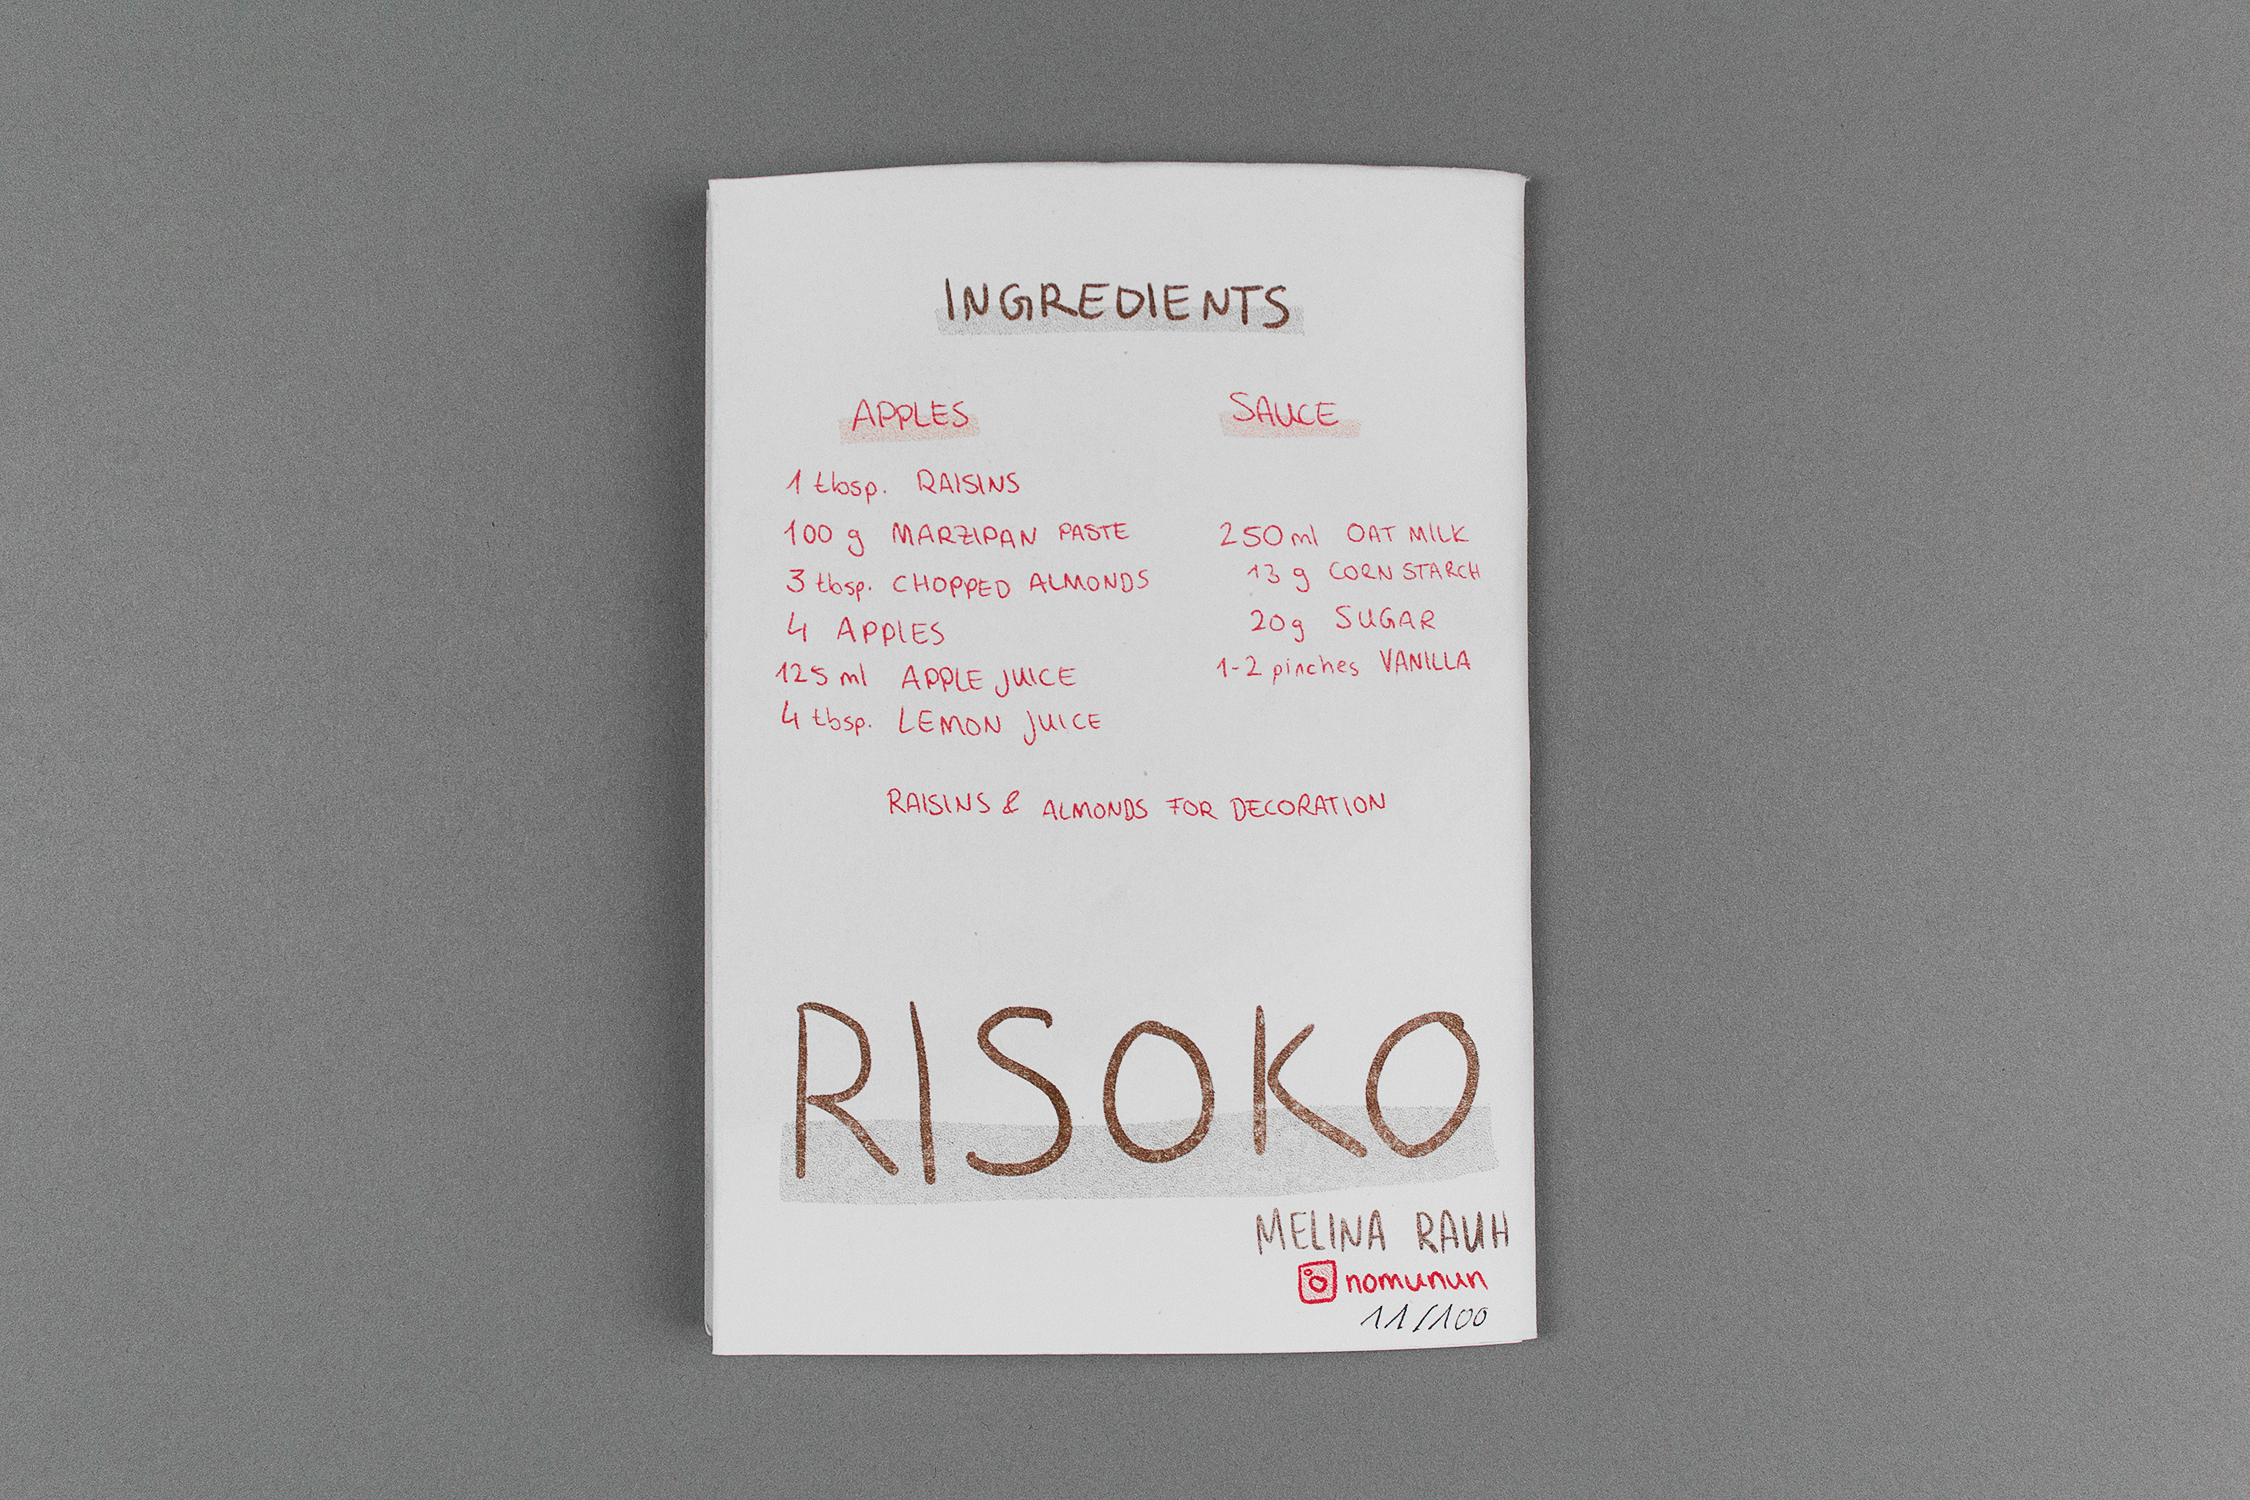 INGREDIENTS
APPLES
1 tbsp. RAISINS
100 g MARZIPAN PASTE
3 tbsp. CHOPPED ALMONDS
4 APPLES
125 ml APPLE JUICE
4 tbsp. LEMON JUICE
SAUCE
250 ml OAT MILK
13 g CORN STARCH
20g SUGAR
1-2 pinches VANILLA
RAISINS & ALMONDS FOR DECORATION
RISOKO
MELINA RAUH
nomunun
11/100